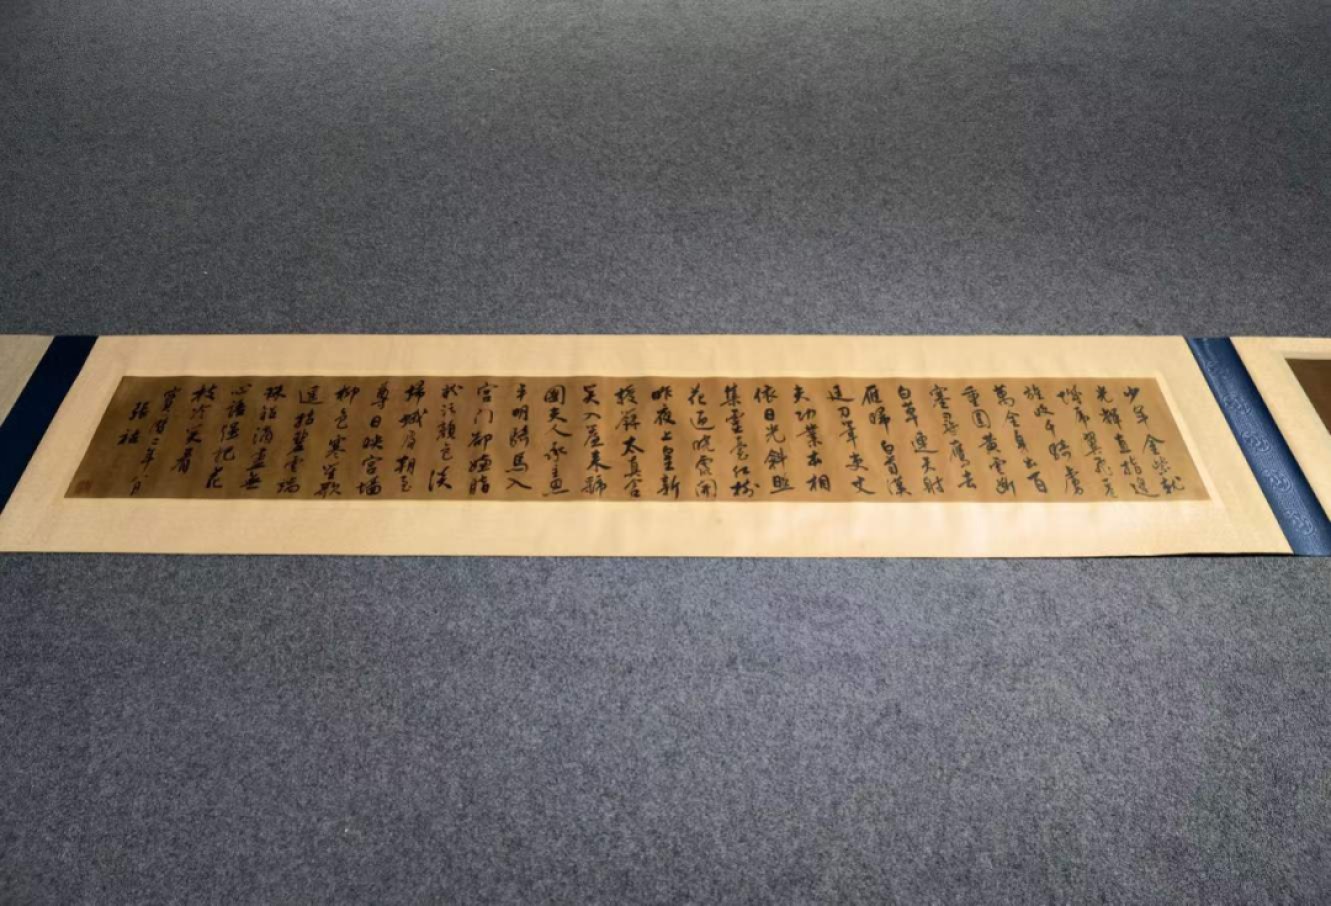 少年金紫就
光輝直指邊
城虎翼飛一卷
旌收千騎虜
萬全身出百
重圍黃雲斷
塞尋鷹去
白草連天射
雁歸白首漢
廷刀筆吏丈
夫功業本相
依日光斜照
集靈臺紅樹
花迎曉露開
昨夜上皇新
授籙太真含
笑入簾來虢
國夫人承主恩
平明騎馬入
宮门卻嫌脂
粉污顏色淡
掃蛾眉朝至
尊日映宮牆
柳色寒笙歌
遥指碧雲端
珠鉛滴盡無
心語强把花
枝冷笑看
寶曆二年八月
張祜